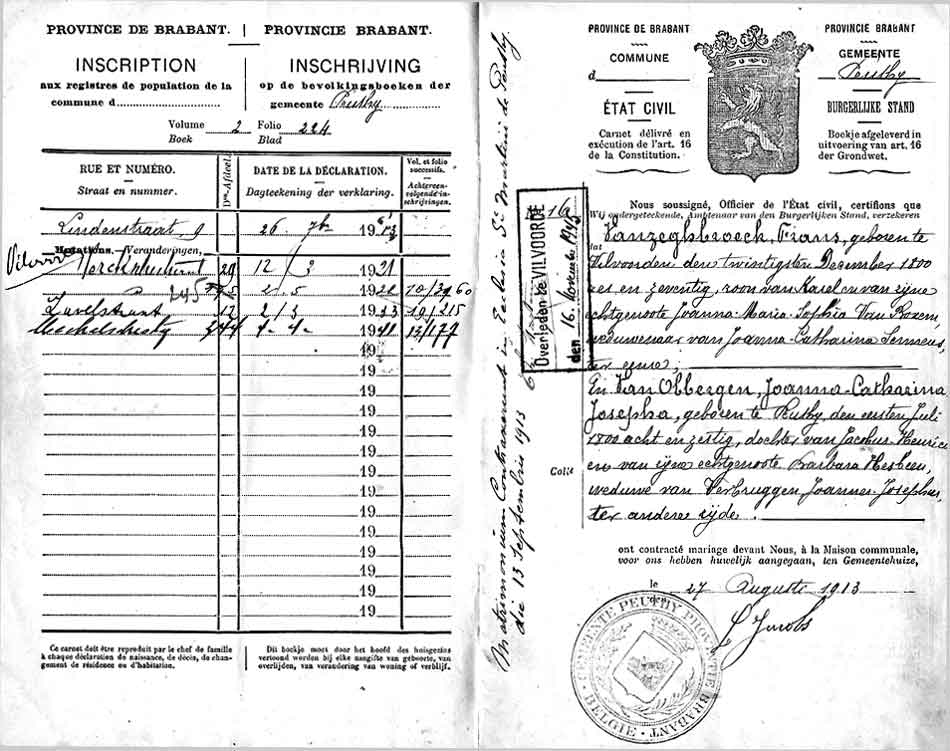 PROVINCE DE BRABANT. | PROVINCIE BRABANT.
INSCRIPTION
aux registres de population de la
commune d
INSCHRIJVING
op de bevolkingsboeken der
gemeente Peuthy
Volume 2 Folio 224
Boek Blad
RUE ET NUMÉRO.
Straat en nummer.
DATE DE LA DÉCLARATION.
Dagteekening der verklaring.
Vol. et folio
successifs.
Achtereen-
volgende in-
schrijvingen.
Lindenstraat, 9 26 7be 1913
Mutations. — Veranderingen,
Vilvoorde
20 12/3 1921
245 2/5 1922 10/3960
12 2/3 1933 19/215
244 4-4- 1941 13/177
19
19
19
19
19
19
19
19
19
19
19
19
19
19
Ce carnet doit être reproduit par le chef de famille
à chaque déclaration de naissance, de décès, de chan-
gement de résidence ou d'habitation.
Dit boekje moet door het hoofd des huisgezins
vertoond werden bij elke aangifte van geboorte, van
overlijden, van verandering van woning of verblijf.
Matrimonium Contraxerunt in Ecclesia Sti Martini de Peuthy
die 13 septembris 1913
No 16
Overleden te VILVOORDE
den 16. November 1943
PROVINCE DE BRABANT
COMMUNE
d
ÉTAT CIVIL
Carnet délivré en
exécution de l'art. 16
de la Constitution.
PROVINCIE BRABANT
GEMEENTE
Peuthy
BURGERLIJKE STAND
Boekje afgeleverd in
uitvoering van art. 16
der Grondwet.
Nous soussigné, Officier de l'État civil, certifions que
Wij ondergeteekende, Ambtenaar van den Burgerlijken Stand, verzekeren
dat Vanzeghbroeck, Frans, geboren te
Vilvoorden den twintigsten December 1800
zes en zeventig, zoon van Karel en van zijne
echtgenoote Joanna-Maria-Sophia Van Roxem,
weduwenaar van Joanna-Catharina
ter eene,
En Van Obbergen, Joanna-Catharina
Josepha, geboren te Peuthy, den eersten Juli
1800 acht en zestig, dochter van Jacobus-Henricus
en van zijne echtgenoote Barbara Hesbeen,
weduwe van Verbruggen Joannes-Josephus
ter andere zijde.
Colié
ont contracté mariage devant Nous, à la Maison communale,
voor ons hebben huwelijk aangegaan, ten Gemeentehuize,
le 27 Auguste 1913
den
Jacobs
GEMEENTE PEUTHY PROVINTE BRABANT
BELGIE